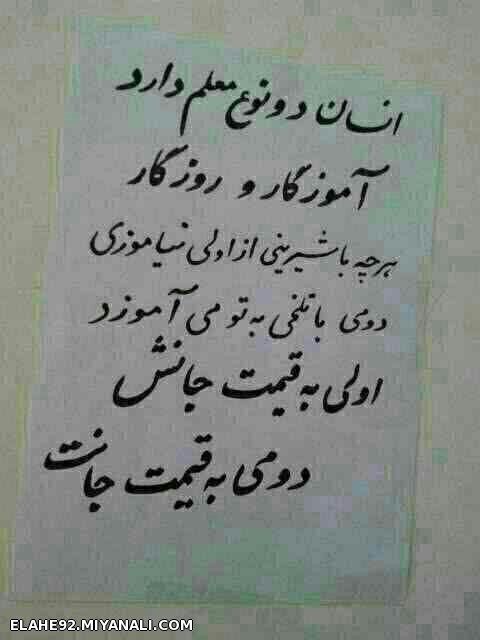 انسان دو نوع معلم دارد
آموزگار و روزگار
هرچه با شیرینی از اولی نیاموزی
دومی با تلخی به تو می آموزد
اولی به قیمت جانش
دومی به قیمت جانت
ELAHE92.MIYANALI.COM